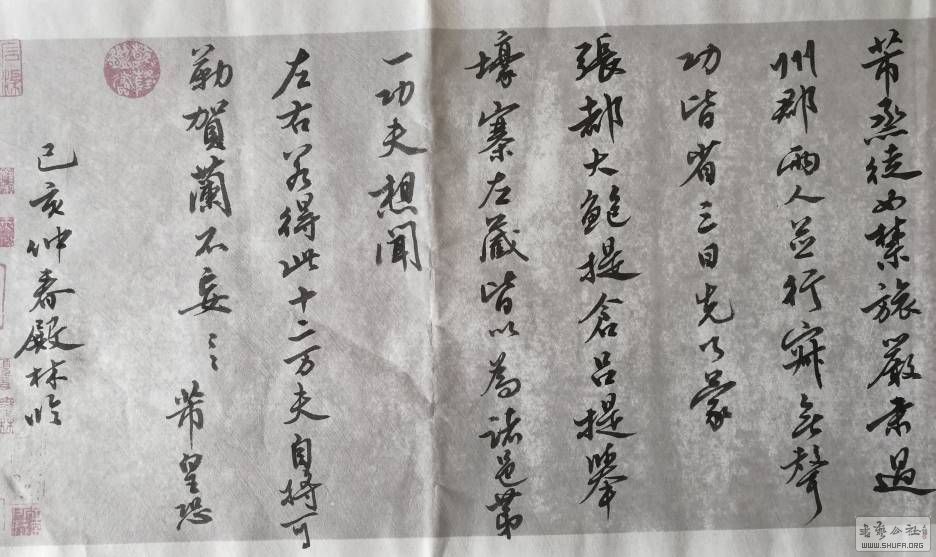 芾烝徒如禁旅嚴肅過
州郡兩人並行寂無聲
功皆省三日先了蒙
張都大鮑提倉呂提舉
壕寨左藏皆以為諸邑第
一功夫想聞
左右若得此十二萬夫自將可
勒賀蘭不妄〻芾皇恐
己亥仲春殿林臨
書藝公社
www.SHUFA.ORG